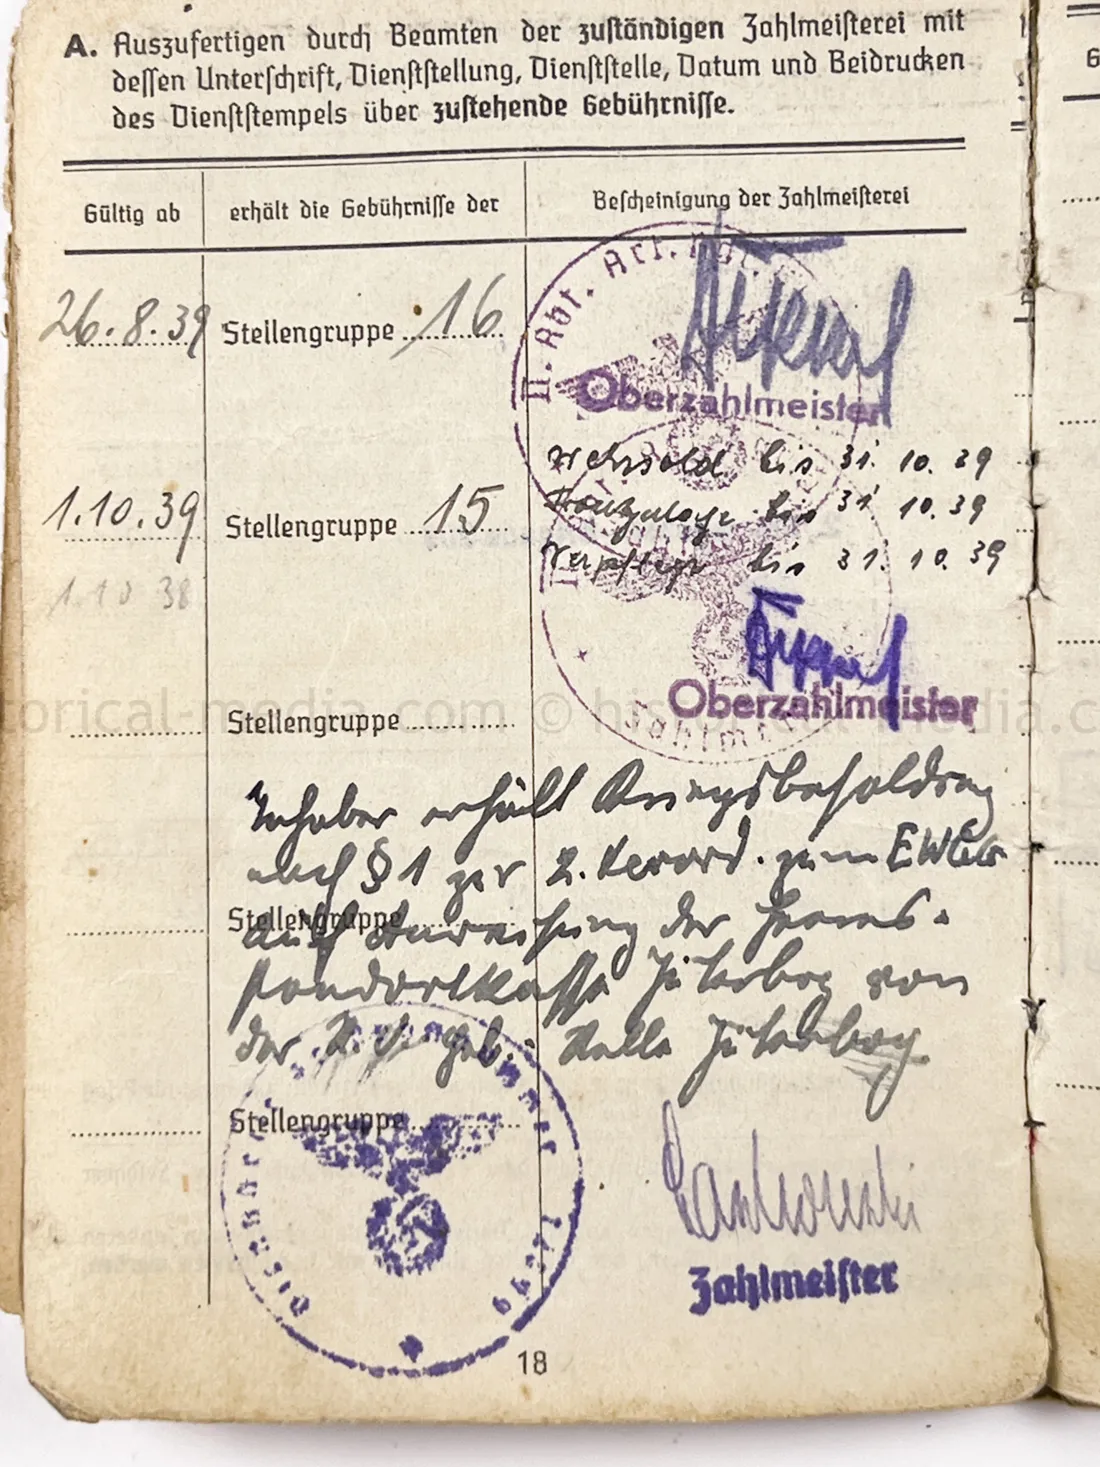 A. Auszufertigen durch Beamten der zuständigen Zahlmeisterei mit
dessen Unterschrift, Dienststellung, Dienststelle, Datum und Beidrucken
des Dienststempels über zustehende Gebührnisse.
Gültig ab erhält die Gebührnisse der Bescheinigung der Zahlmeisterei
26.8.39 Stellengruppe 16
II. Abt. Art.
Oberzahlmeister
Wehrsold bis 31. 10. 39
1.10.39 Stellengruppe 15
Frontzulage bis 31. 10. 39
Verpflegt bis 31. 10. 39
1.10 38
Oberzahlmeister
Stellengruppe
Zahlm
historical-media.com © historical-media.c
Inhaber erhält Kriegsbesoldung
nach § 1 zur 2. Verord. zum EWGG
Stellengruppe
auf Anweisung der Heeres-
standortkasse Jüterbog von
der Geb. Stelle Jüterbog
Stellengruppe
Zahlmeister
18